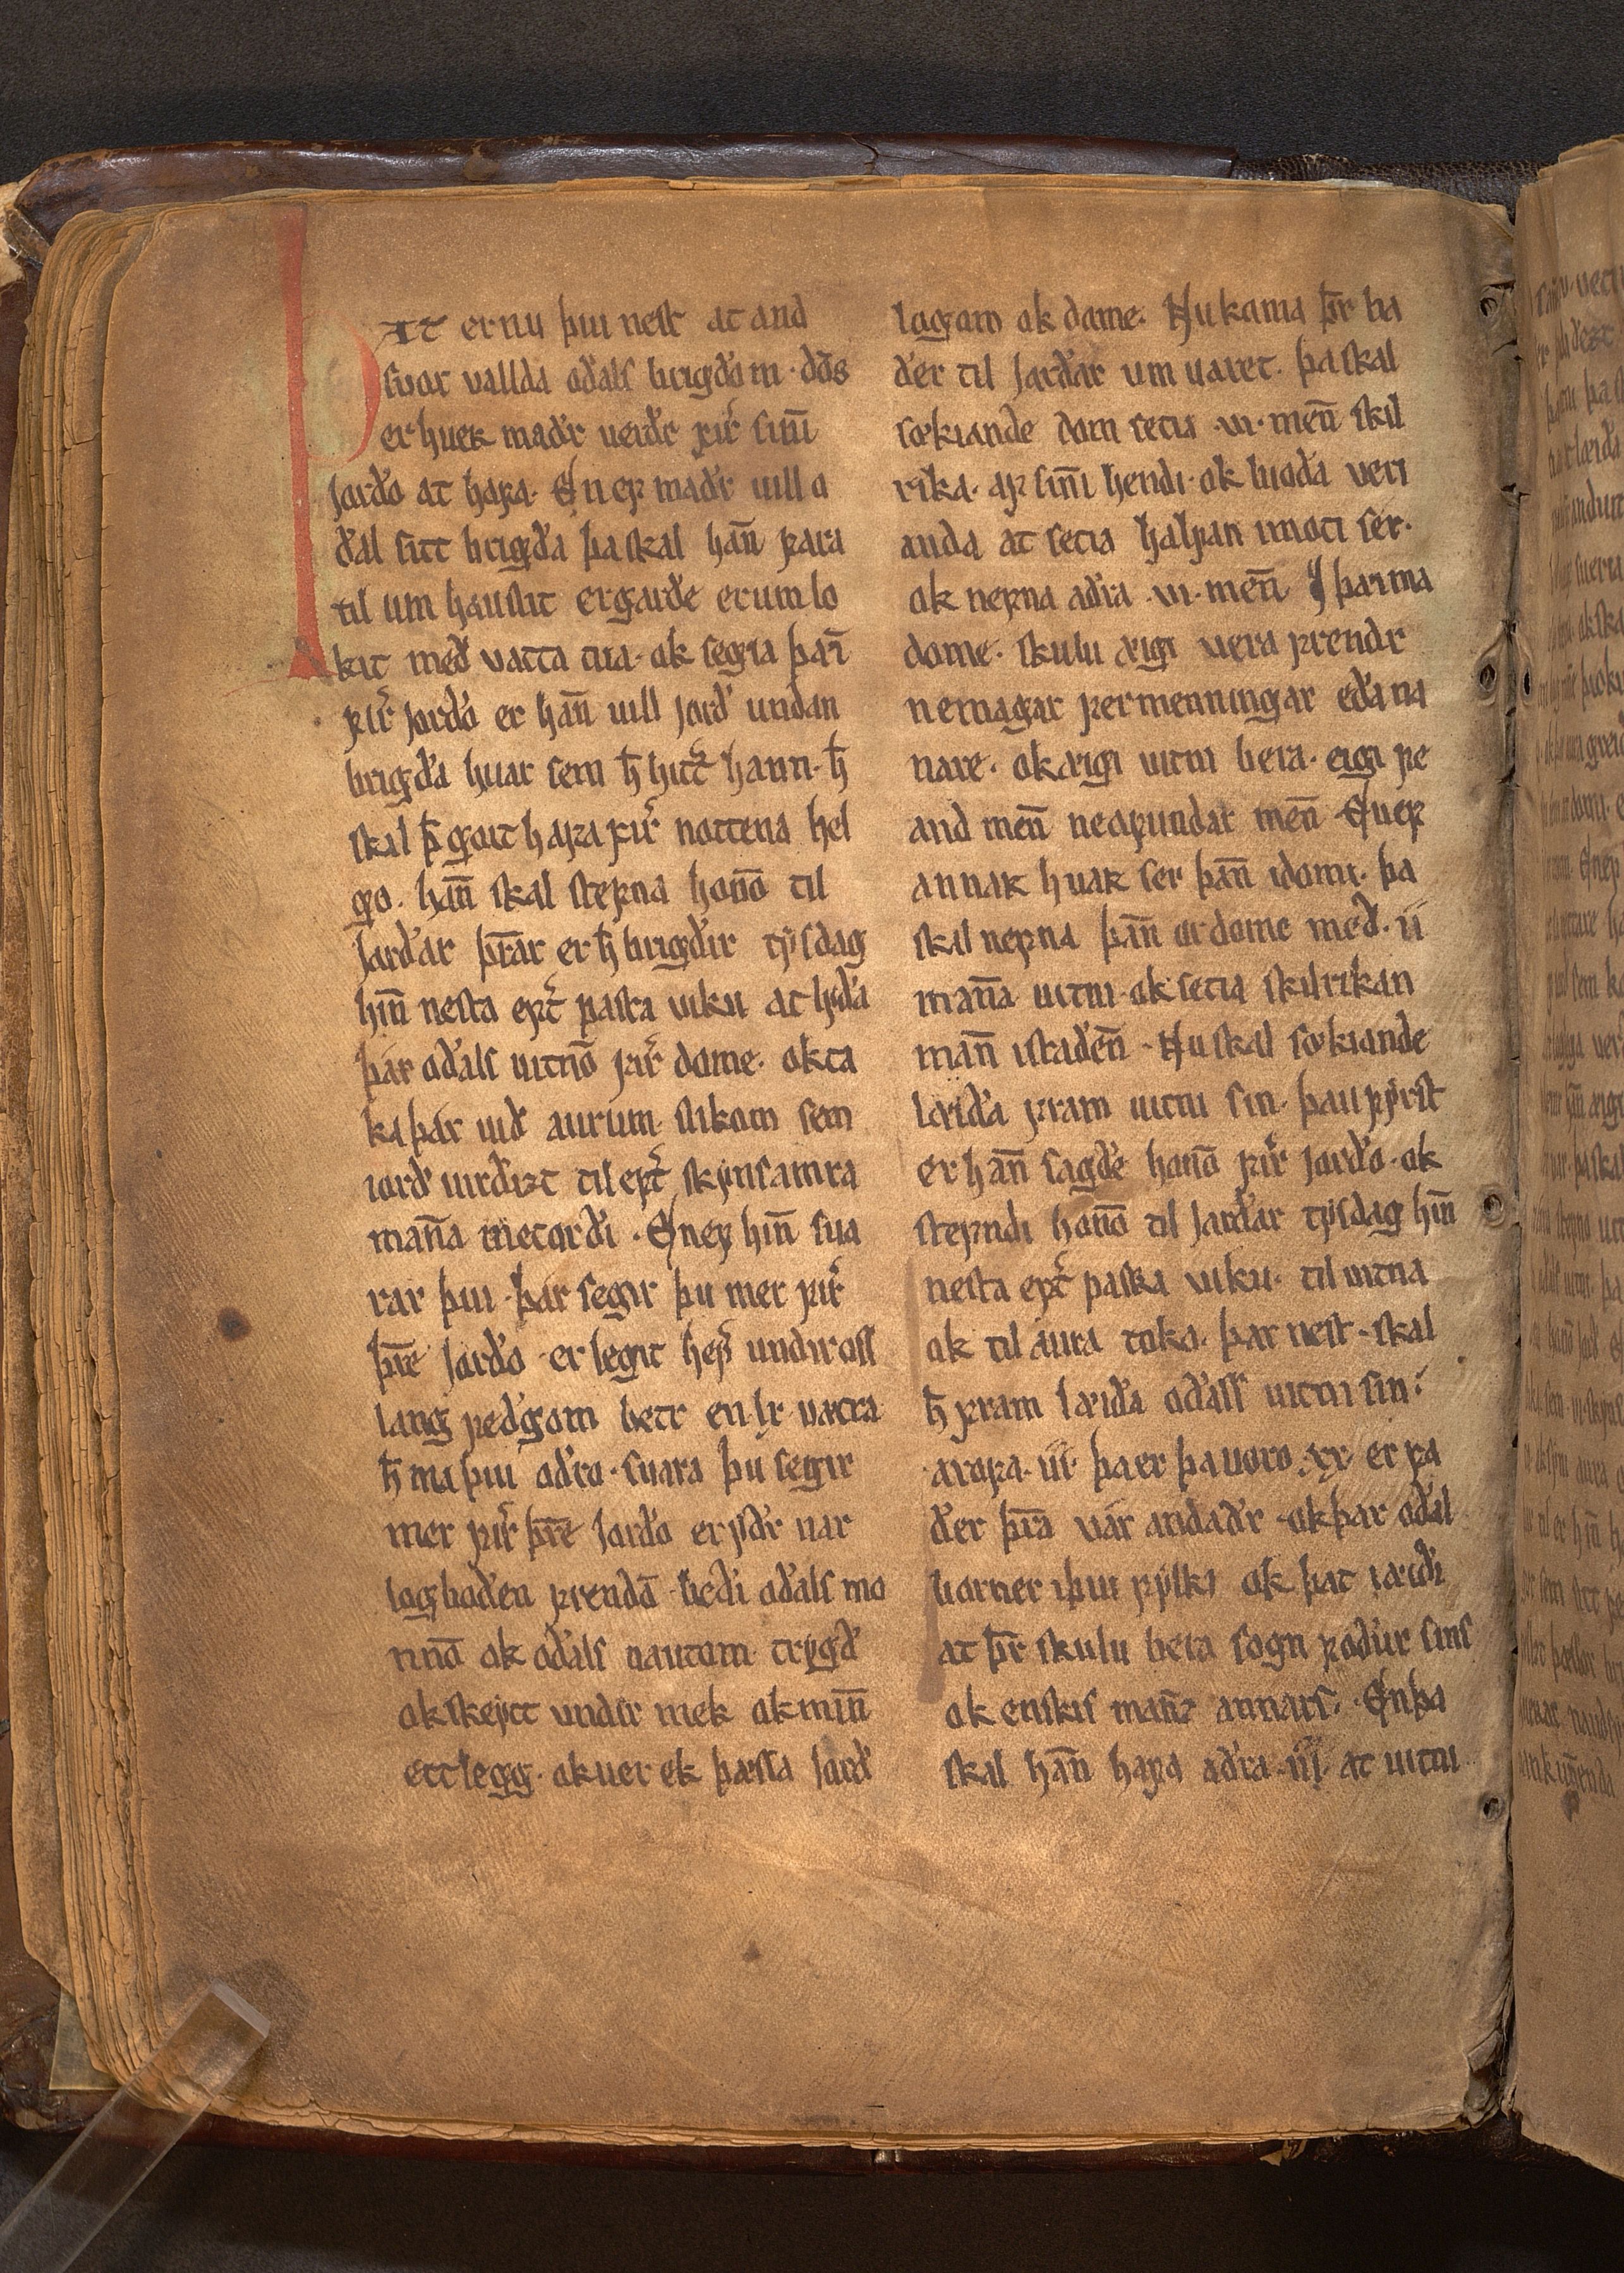 Þat er nu þui nest at and
suor vallda oðals brigðom · dðs
er huer maðr uerðr firͥr sinni
Jorðo at hafa. En ef maðr uill o
ðal sitt brigða þa skal han̄ fara
til um haustit er garðe er um lo
kit með vatta tua · ok segia þan̄
firͥr Jorðo er han̄ uill Jorð undan
brigða huar sem h̄ hittͥr hann · h̄
skal þ̄ gort hafa firͥr nottena hel
go . han̄ skal stefna hono̅ til
Jarðar þr̄ar er h̄ brigðir tysdag
hin̄ nesta eptͥr paska uiku at hyða
þar oðals uitno̅ firͥr dome. ok ta
ka þar uið aurum · slikom sem
iorð uirðizt til eptͥr skynsamra
man̄a metorði · En ef hin̄ sua
rar þui · þar segir þu mer firͥr
þr̄e Jorðo · er legit hefͥr undir oss
lang feðgom betr en lx · uættra
h̄ ma þui aðro · suara þu segir
mer firͥr þr̄e Jorðo er yðr uar
logboðen frenda̅ · beði oðals mo
nno̅ ok oðals nautom · trygð
ok skeytt undir mek ok min̄
ettlegg · ok uer ek þæssa Jorð
logom ok dome. Nu koma þr̄ ba
ðer til Jarðar um uaret. þa skal
sǿkiande dom setia ·vi· men̄ skil
rika · af sin̄i hendi · ok bioða veri
anda at setia halfan imoti ser.
ok nefna aðra ·vi· men̄ J þæima
dome · skulu æigi vera frendr
ne magar fermenningar eða na
nare . ok æigi uitni bera . eigi fe
and men̄ ne ofundar men̄ En ef
annar huar ser þan̄ idomi · þa
skal nefna þan̄ or dome með · ii
man̄a uitni · ok setia skilrikan
man̄ i staðen̄ · Nu skal sǿkiande
læiða fram uitni sin · þau fyrst
er han̄ sagðe hono̅ firͥr Jorðo · ok
stefndi hono̅ til Jarðar tysdag hin̄
nesta eptͥr paska uiku · til uitna
ok til aura toko. þar nest · skal
h̄ fram læiða oðals uitni sin ·
arofa · iii · þa er þa uoro · xx · er fa
ðer þr̄a var andaðr · ok þar oðal
borner i þui fylki ok þat iarði
at þr̄ skulu bera sogn foður sins
ok enskis man̄z annars. En þa
skal han̄ hafa aðra · iii · at uitni